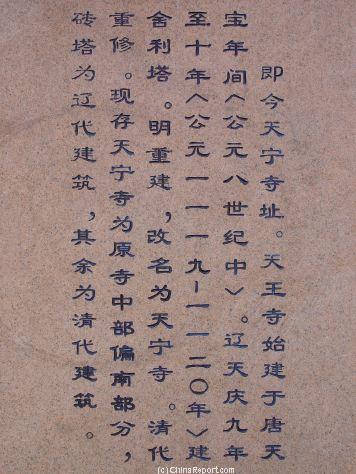 即今天宁寺址。天王寺始建于唐天
宝年间〈公元八世纪中〉。辽天庆九年
至十年〈公元一一一九-一一二〇年〉建
舍利塔。明重建，改名为天宁寺。清代
重修。现存天宁寺为原寺中部偏南部分，
砖塔为辽代建筑，其余为清代建筑。
(c) ChinaReport.com